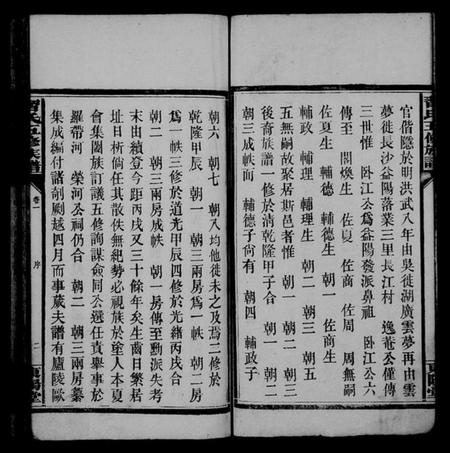 官偕隱於明洪武八年由吳徙湖廣雲夢再由雲
夢徙長沙益陽落業三里長江村 逸菴公僅傳
三世惟 卧江公爲益陽發派鼻祖 卧江公六
傳至 閤煥生 佐夏 佐商 佐周 周無嗣
佐夏生 輔德 輔德生 朝一 佐商生
輔政 輔理 輔理生 朝二 朝三 朝五
五無嗣故聚居斯邑者惟 朝一 朝二 朝三
後裔族譜一修於清乾隆甲子合 朝一 朝二
朝三成帙而 輔德子尙有 朝四 輔政子
朝六 朝七 朝八均他徙未之及焉二修於
乾隆甲辰 朝一 朝三兩房爲一帙 朝二房
爲一帙三修於道光甲辰四修於光緒丙戌合
朝二 朝三兩房成帙 朝一房傳至勳派失考
末由續登今距丙戌又三十餘年矣生齒日繁居
址日析倘任其散佚無紀勢必視族於塗人本夏
會集闔族訂議五修詢謀僉同公選任責舉事於
羅帶河 榮河公祠仍合 朝二 朝三兩房纂
集成編付諸剞劂越四月而事蕆夫譜有廬陵歐
習氏五修族譜
卷一
序
二